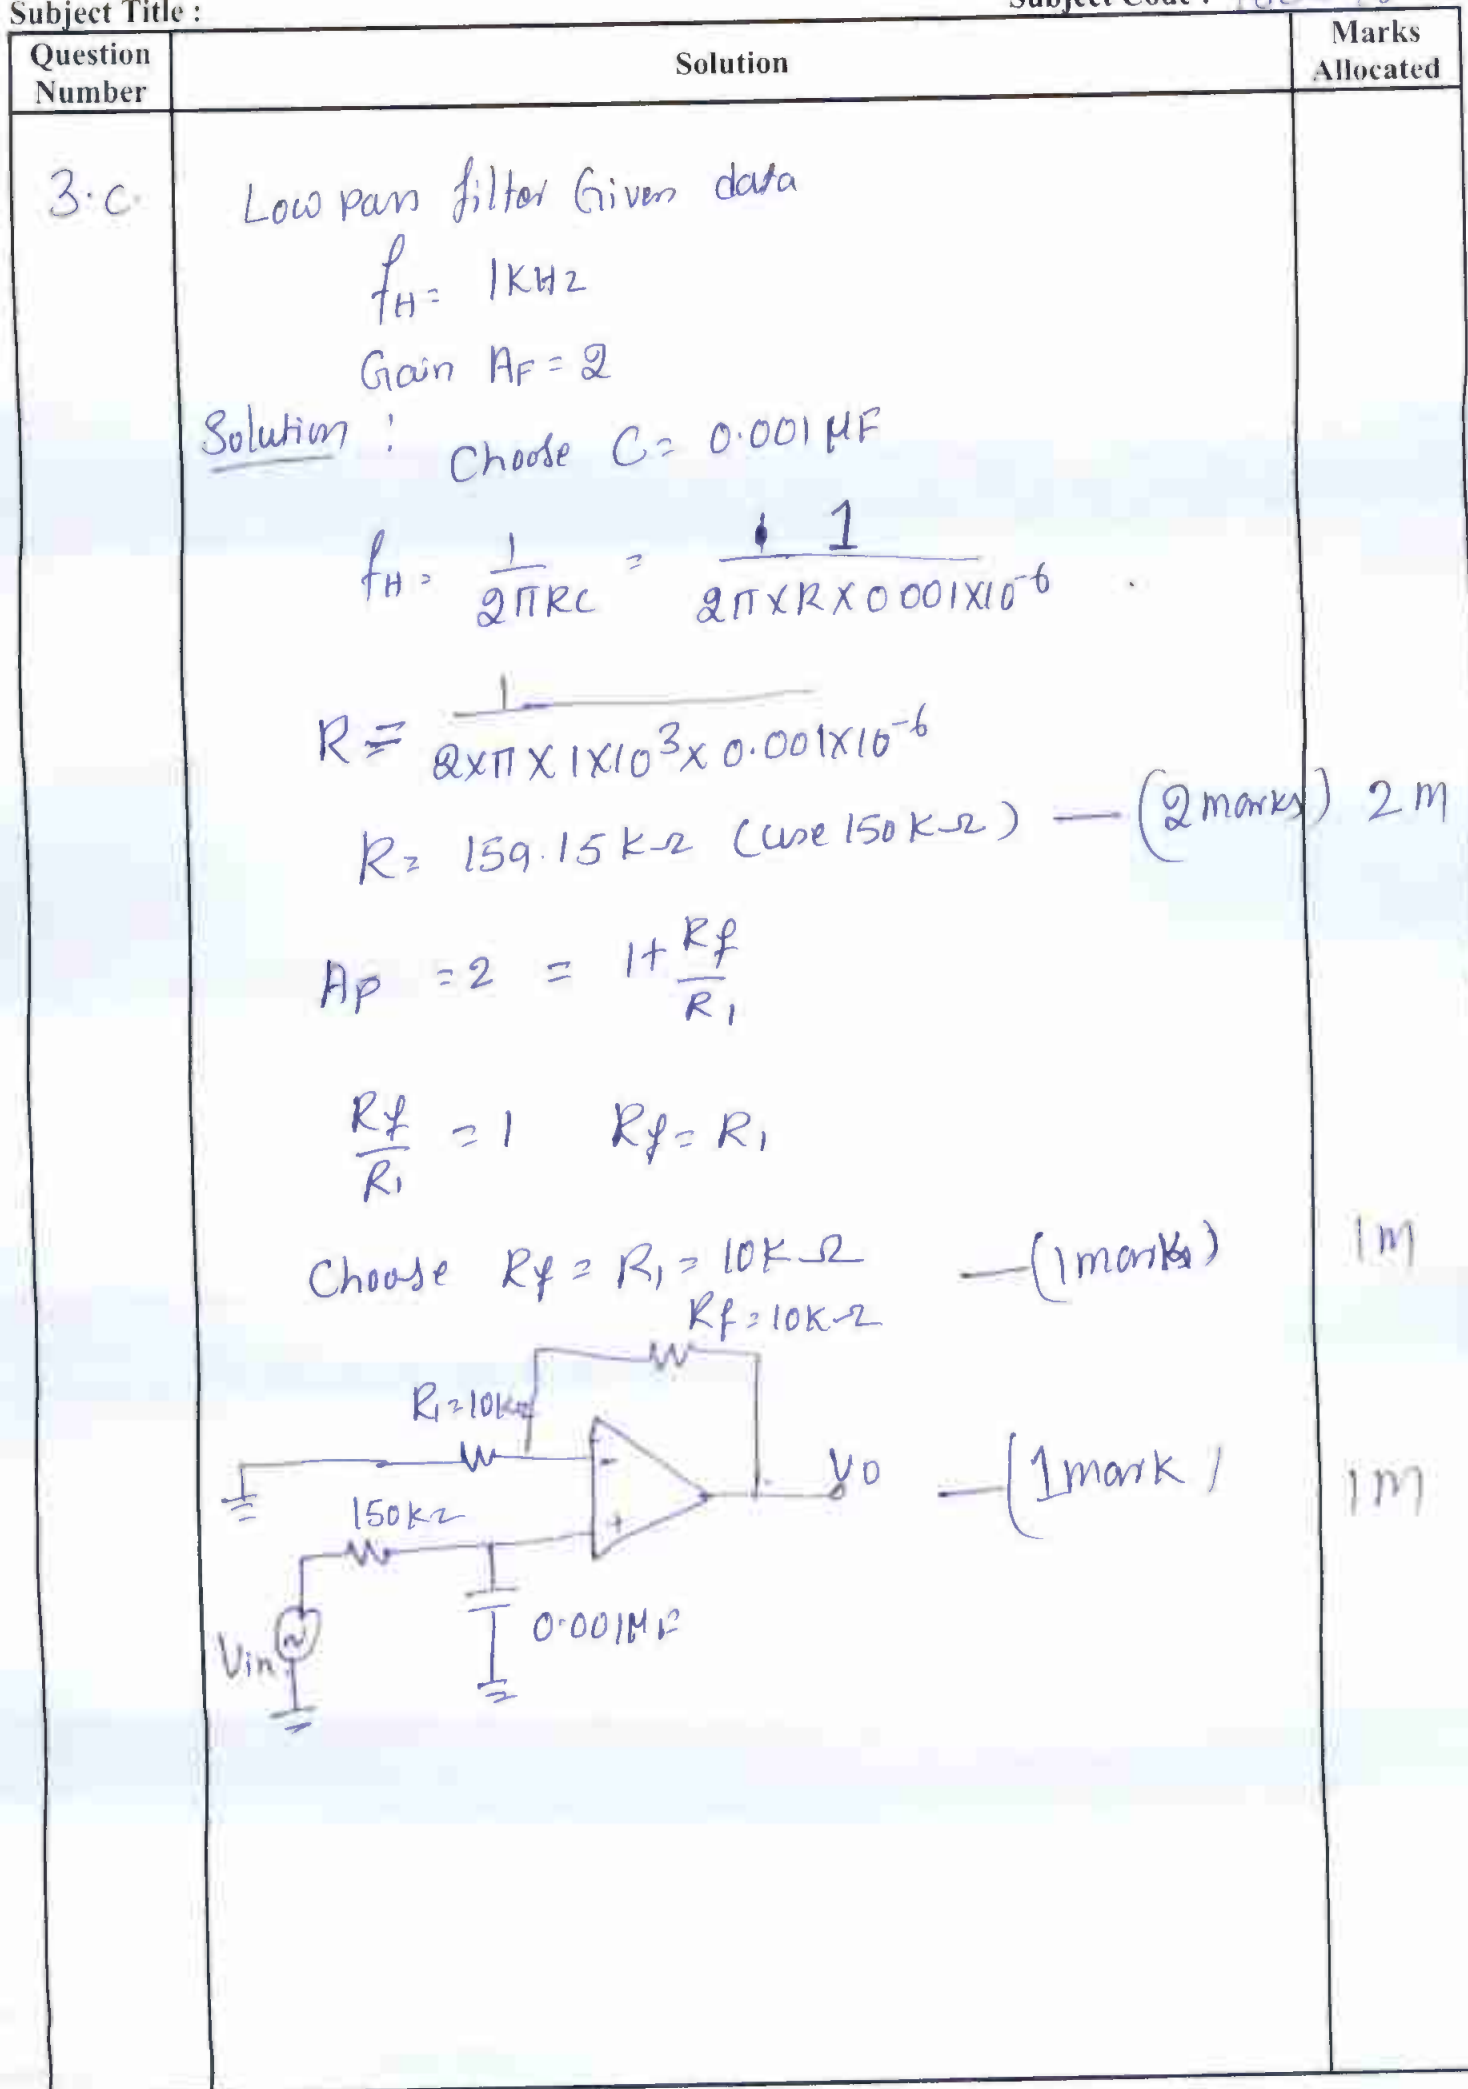 Subject Title :
Subject Code :
Question Number
Solution
Marks Allocated
3.c.
Low pass filter Given data
fH = 1KHz
Gain AF = 2
Solution :
Choose C = 0.001 μF
fH = 1/2πRC = 1/2π×R×0.001×10^-6
R = 1/2×π×1×10^3×0.001×10^-6
R = 159.15 KΩ (use 150KΩ) — (2 marks) 2M
AP = 2 = 1 + Rf/R1
Rf/R1 = 1 Rf = R1
Choose Rf = R1 = 10KΩ — (1 marks) 1M
Rf = 10KΩ
R1 = 10KΩ
-
VO — (1 mark) 1M
150KΩ
+
0.001μF
Vin